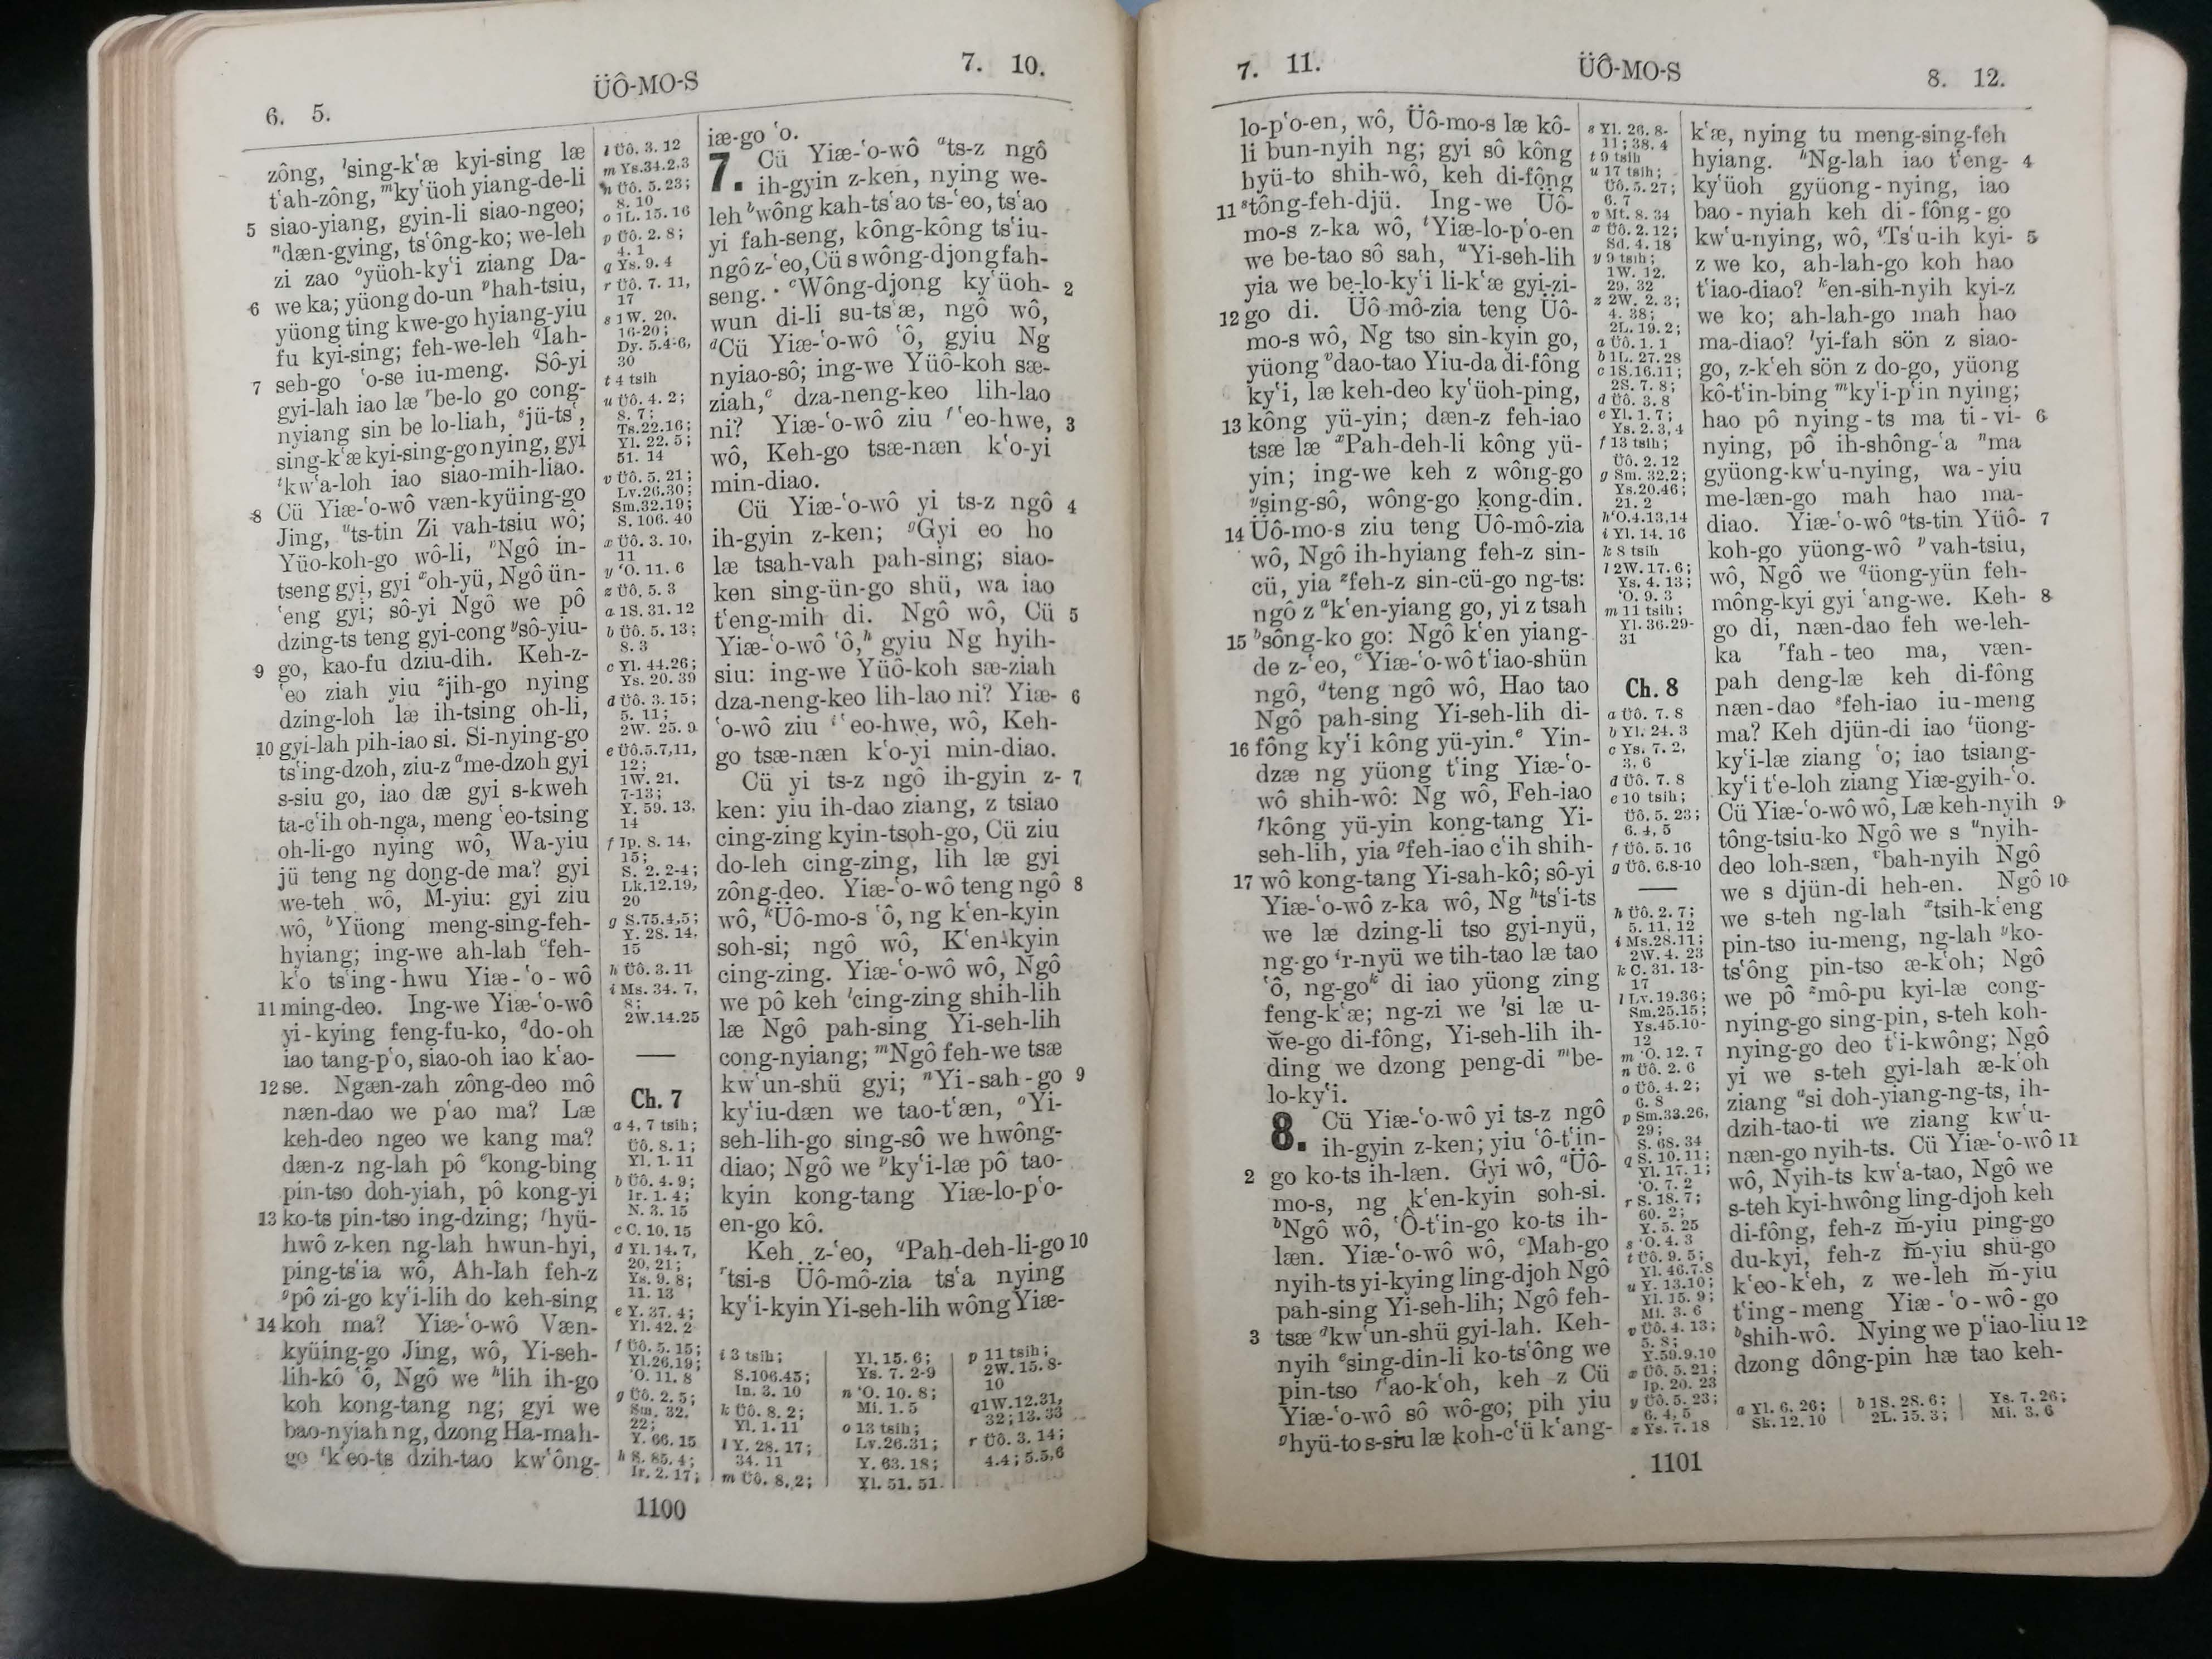 6. 5.
ÜÔ-MO-S
7. 10.
zông, ˡsing-kʻæ kyi-sing læ
tʻah-zông, ᵐkyʻüoh yiang-de-li
5 siao-yiang, gyin-li siao-ngeo;
ⁿdæn-gying, tsʻông-ko; we-leh
zi zao ᵒyüoh-kyʻi ziang Da-
6 we ka; yüong do-un ᵖhah-tsiu,
yüong ting kwe-go hyiang-yiu
fu kyi-sing; feh-we-leh ᑫIah-
7 seh-go ʻo-se iu-meng. Sô-yi
gyi-lah iao læ ʳbe-lo go cong-
nyiang sin be lo-liah, ˢjü-tsʻ,
sing-kʻæ kyi-sing-go nying, gyi
ᵗkwʻa-loh iao siao-mih-liao.
8 Cü Yiæ-ʻo-wô væn-kyüing-go
Jing, ᵘts-tin Zi vah-tsiu wô;
Yüo-koh-go wô-li, ᵛNgô in-
tseng gyi, gyi ˣoh-yü, Ngô ün-
ʻeng gyi; sô-yi Ngô we pô
dzing-ts teng gyi-cong ʸsô-yiu-
9 go, kao-fu dziu-dih. Keh-z-
ʻeo ziah yiu ᶻjih-go nying
dzing-loh læ ih-tsing oh-li,
10 gyi-lah pih-iao si. Si-nying-go
tsʻing-dzoh, ziu-z ᵃme-dzoh gyi
s-siu go, iao dæ gyi s-kweh
ta-cʻih oh-nga, meng ʻeo-tsing
oh-li-go nying wô, Wa-yiu
jü teng ng dong-de ma? gyi
we-teh wô, M̆-yiu: gyi ziu
wô, ᵇYüong meng-sing-feh-
hyiang; ing-we ah-lah ᶜfeh-
kʻo tsʻing-hwu Yiæ-ʻo-wô
11 ming-deo. Ing-we Yiæ-ʻo-wô
yi-kying feng-fu-ko, ᵈdo-oh
iao tang-pʻo, siao-oh iao kʻao-
12 se. Ngæn-zah zông-deo mô
næn-dao we pʻao ma? Læ
keh-deo ngeo we kang ma?
dæn-z ng-lah pô ᵉkong-bing
pin-tso doh-yiah, pô kong-yi
13 ko-ts pin-tso ing-dzing; ᶠhyü-
hwô z-ken ng-lah hwun-hyi,
ping-tsʻia wô, Ah-lah feh-z
ᵍpô zi-go kyʻi-lih do keh-sing
14 koh ma? Yiæ-ʻo-wô Væn-
kyüing-go Jing, wô, Yi-seh-
lih-kô ʻô, Ngô we ʰlih ih-go
koh kong-tang ng; gyi we
bao-nyiah ng, dzong Ha-mah-
go ⁱkʻeo-ts dzih-tao kwʻông-
l Üô. 3. 12
m Ys.34.2,3
n Üô. 5. 23;
8. 10
o 1L. 15. 16
p Üô. 2. 8;
4. 1
q Ys. 9. 4
r Üô. 7. 11,
17
s 1W. 20.
16-20;
Dy. 5.4-6,
30
t 4 tsih
u Üô. 4. 2;
8. 7;
Ts.22.16;
Yl. 22. 5;
51. 14
v Üô. 5. 21;
Lv.26.30;
Sm.32.19;
S. 106. 40
x Üô. 3. 10,
11
y ʻO. 11. 6
z Üô. 5. 3
a 1S. 31. 12
b Üô. 5. 13;
8. 3
c Yl. 44.26;
Ys. 20. 39
d Üô. 3. 15;
5. 11;
2W. 25. 9
e Üô.5.7,11,
12;
1W. 21.
7-13;
Y. 59. 13,
14
f Ip. 8. 14,
15;
S. 2. 2-4;
Lk.12.19,
20
g S.75.4,5;
Y. 28. 14,
15
h Üô. 3. 11
i Ms. 34. 7,
8;
2W.14.25
Ch. 7
a 4, 7 tsih;
Üô. 8. 1;
Yl. 1. 11
b Üô. 4. 9;
Ir. 1. 4;
N. 3. 15
c C. 10. 15
d Yl. 14. 7,
20, 21;
Ys. 9. 8;
11. 13
e Y. 37. 4;
Yl. 42. 2
f Üô. 5. 15;
Yl.26.19;
ʻO. 11. 8
g Üô. 2. 5;
Sm. 32.
22;
Y. 66. 15
h S. 85. 4;
Ir. 2. 17;
iæ-go ʻo.
7. Cü Yiæ-ʻo-wô ᵃts-z ngô
ih-gyin z-ken, nying we-
leh ᵇwông kah-tsʻao ts-ʻeo, tsʻao
yi fah-seng, kông-kông tsʻiu-
ngô z-ʻeo, Cü s wông-djong fah-
seng. ᶜWông-djong kyʻüoh- 2
wun di-li su-tsʻæ, ngô wô,
ᵈCü Yiæ-ʻo-wô ʻô, gyiu Ng
nyiao-sô; ing-we Yüô-koh sæ-
ziah,ᵉ dza-neng-keo lih-lao
ni? Yiæ-ʻo-wô ziu ᶠʻeo-hwe, 3
wô, Keh-go tsæ-næn kʻo-yi
min-diao.
Cü Yiæ-ʻo-wô yi ts-z ngô 4
ih-gyin z-ken; ᵍGyi eo ho
læ tsah-vah pah-sing; siao-
ken sing-ün-go shü, wa iao
tʻeng-mih di. Ngô wô, Cü 5
Yiæ-ʻo-wô ʻô,ʰ gyiu Ng hyih-
siu: ing-we Yüô-koh sæ-ziah
dza-neng-keo lih-lao ni? Yiæ- 6
ʻo-wô ziu ⁱʻeo-hwe, wô, Keh-
go tsæ-næn kʻo-yi min-diao.
Cü yi ts-z ngô ih-gyin z- 7
ken: yiu ih-dao ziang, z tsiao
cing-zing kyin-tsoh-go, Cü ziu
do-leh cing-zing, lih læ gyi
zông-deo. Yiæ-ʻo-wô teng ngô 8
wô, ᵏÜô-mo-s ʻô, ng kʻen-kyin
soh-si; ngô wô, Kʻen-kyin
cing-zing. Yiæ-ʻo-wô wô, Ngô
we pô keh ˡcing-zing shih-lih
læ Ngô pah-sing Yi-seh-lih
cong-nyiang; ᵐNgô feh-we tsæ
kwʻun-shü gyi; ⁿYi-sah-go 9
kyʻiu-dæn we tao-tʻæn, ᵒYi-
seh-lih-go sing-sô we hwông-
diao; Ngô we ᵖkyʻi-læ pô tao-
kyin kong-tang Yiæ-lo-pʻo-
en-go kô.
Keh z-ʻeo, ᑫPah-deh-li-go 10
ʳtsi-s Üô-mô-zia tsʻa nying
kyʻi-kyin Yi-seh-lih wông Yiæ-
i 3 tsih;
S.106.45;
In. 3. 10
k Üô. 8. 2;
Yl. 1. 11
l Y. 28. 17;
34. 11
m Üô. 8. 2;
Yl. 15. 6;
Ys. 7. 2-9
n ʻO. 10. 8;
Mi. 1. 5
o 13 tsih;
Lv.26.31;
Y. 63. 18;
Yl. 51. 51
p 11 tsih;
2W. 15. 8-
10
q1W.12.31,
32; 13. 33
r Üô. 3. 14;
4.4; 5.5,6
1100
7. 11.
ÜÔ-MO-S
8. 12.
lo-pʻo-en, wô, Üô-mo-s læ kô-
li bun-nyih ng; gyi sô kông
hyü-to shih-wô, keh di-fông
11 ˢtông-feh-djü. Ing-we Üô-
mo-s z-ka wô, ᵗYiæ-lo-pʻo-en
we be-tao sô sah, ᵘYi-seh-lih
yia we be-lo-kyʻi li-kʻæ gyi-zi-
12 go di. Üô-mô-zia teng Üô-
mo-s wô, Ng tso sin-kyin go,
yüong ᵛdao-tao Yiu-da di-fông
kyʻi, læ keh-deo kyʻüoh-ping,
13 kông yü-yin; dæn-z feh-iao
tsæ læ ˣPah-deh-li kông yü-
yin; ing-we keh z wông-go
ʸsing-sô, wông-go kong-din.
14 Üô-mo-s ziu teng Üô-mô-zia
wô, Ngô ih-hyiang feh-z sin-
cü, yia ᶻfeh-z sin-cü-go ng-ts:
ngô z ᵃkʻen-yiang go, yi z tsah
15 ᵇsông-ko go: Ngô kʻen yiang-
de z-ʻeo, ᶜYiæ-ʻo-wô tʻiao-shün
ngô, ᵈteng ngô wô, Hao tao
Ngô pah-sing Yi-seh-lih di-
16 fông kyʻi kông yü-yin.ᵉ Yin-
dzæ ng yüong tʻing Yiæ-ʻo-
wô shih-wô: Ng wô, Feh-iao
ᶠkông yü-yin kong-tang Yi-
seh-lih, yia ᵍfeh-iao cʻih shih-
17 wô kong-tang Yi-sah-kô; sô-yi
Yiæ-ʻo-wô z-ka wô, Ng ʰtsʻi-ts
we læ dzing-li tso gyi-nyü,
ng-go ⁱr-nyü we tih-tao læ tao
ʻô, ng-goᵏ di iao yüong zing
feng-kʻæ; ng-zi we ˡsi læ u-
w̆e-go di-fông, Yi-seh-lih ih-
ding we dzong peng-di ᵐbe-
lo-kyʻi.
8. Cü Yiæ-ʻo-wô yi ts-z ngô
ih-gyin z-ken; yiu ʻô-tʻin-
2 go ko-ts ih-læn. Gyi wô, ᵃÜô-
mo-s, ng kʻen-kyin soh-si.
ᵇNgô wô, ʻÔ-tʻin-go ko-ts ih-
læn. Yiæ-ʻo-wô wô, ᶜMah-go
nyih-ts yi-kying ling-djoh Ngô
pah-sing Yi-seh-lih; Ngô feh-
3 tsæ ᵈkwʻun-shü gyi-lah. Keh-
nyih ᵉsing-din-li ko-tsʻông we
pin-tso ᶠao-kʻoh, keh z Cü
Yiæ-ʻo-wô sô wô-go; pih yiu
ᵍhyü-to s-siu læ koh-cʻü kʻang-
s Yl. 26. 8-
11; 38. 4
t 9 tsih
u 17 tsih;
Üô. 5. 27;
6. 7
v Mt. 8. 34
x Üô. 2. 12;
Sd. 4. 18
y 9 tsih;
1W. 12.
29, 32
z 2W. 2. 3;
4. 38;
2L. 19. 2;
a Üô. 1. 1
b 1L. 27. 28
c 1S.16.11;
2S. 7. 8;
d Üô. 3. 8
e Yl. 1. 7;
Ys. 2. 3, 4
f 13 tsih;
Üô. 2. 12
g Sm. 32.2;
Ys.20.46;
21. 2
hʻO.4.13,14
i Yl. 14. 16
k 8 tsih
l 2W. 17. 6;
Ys. 4. 13;
ʻO. 9. 3
m 11 tsih;
Yl. 36.29-
31
Ch. 8
a Üô. 7. 8
b Yl. 24. 3
c Ys. 7. 2,
3, 6
d Üô. 7. 8
e 10 tsih;
Üô. 5. 23;
6. 4, 5
f Üô. 5. 16
g Üô. 6.8-10
h Üô. 2. 7;
5. 11, 12
i Ms.28.11;
2W. 4. 23
k C. 31. 13-
17
l Lv.19.36;
Sm.25.15;
Ys.45.10-
12
m ʻO. 12. 7
n Üô. 2. 6
o Üô. 4. 2;
6. 8
p Sm.33.26,
29;
S. 68. 34
q S. 10. 11;
Yl. 17. 1;
ʻO. 7. 2
r S. 18. 7;
60. 2;
Y. 5. 25
s ʻO. 4. 3
t Üô. 9. 5;
Yl. 46.7.8
u Y. 13.10;
Yl. 15. 9;
Mi. 3. 6
v Üô. 4. 13;
5. 8;
Y.59.9,10
x Üô. 5. 21;
Ip. 20. 23
y Üô. 5. 23;
6. 4, 5
z Ys. 7. 18
kʻæ, nying tu meng-sing-feh
hyiang. ʰNg-lah iao tʻeng- 4
kyʻüoh gyüong-nying, iao
bao-nyiah keh di-fông-go
kwʻu-nying, wô, ⁱTsʻu-ih kyi- 5
z we ko, ah-lah-go koh hao
tʻiao-diao? ᵏen-sih-nyih kyi-z
we ko; ah-lah-go mah hao
ma-diao? ˡyi-fah sön z siao-
go, z-kʻeh sön z do-go, yüong
kô-tʻin-bing ᵐkyʻi-pʻin nying;
hao pô nying-ts ma ti-vi- 6
nying, pô ih-shông-ʻa ⁿma
gyüong-kwʻu-nying, wa-yiu
me-læn-go mah hao ma-
diao. Yiæ-ʻo-wô ᵒts-tin Yüô- 7
koh-go yüong-wô ᵖvah-tsiu,
wô, Ngô we ᑫüong-yün feh-
mông-kyi gyi ʻang-we. Keh- 8
go di, næn-dao feh we-leh-
ka ʳfah-teo ma, væn-
pah deng-læ keh di-fông
næn-dao ˢfeh-iao iu-meng
ma? Keh djün-di iao ᵗüong-
kyʻi-læ ziang ʻo; iao tsiang-
kyʻi tʻe-loh ziang Yiæ-gyih-ʻo.
Cü Yiæ-ʻo-wô wô, Læ keh-nyih 9
tông-tsiu-ko Ngô we s ᵘnyih-
deo loh-sæn, ᵛbah-nyih Ngô
we s djün-di heh-en. Ngô 10
we s-teh ng-lah ˣtsih-kʻeng
pin-tso iu-meng, ng-lah ʸko-
tsʻông pin-tso æ-kʻoh; Ngô
we pô ᶻmô-pu kyi-læ cong-
nying-go sing-pin, s-teh koh-
nying-go deo tʻi-kwông; Ngô
yi we s-teh gyi-lah æ-kʻoh
ziang ᵃsi doh-yiang-ng-ts, ih-
dzih-tao-ti we ziang kwʻu-
næn-go nyih-ts. Cü Yiæ-ʻo-wô 11
wô, Nyih-ts kwʻa-tao, Ngô we
s-teh kyi-hwông ling-djoh keh
di-fông, feh-z m̆-yiu ping-go
du-kyi, feh-z m̆-yiu shü-go
kʻeo-kʻeh, z we-leh m̆-yiu
tʻing-meng Yiæ-ʻo-wô-go
ᵇshih-wô. Nying we pʻiao-liu 12
dzong dông-pin hæ tao keh-
a Yl. 6. 26;
Sk. 12. 10
b 1S. 28. 6;
2L. 15. 3;
Ys. 7. 26;
Mi. 3. 6
1101